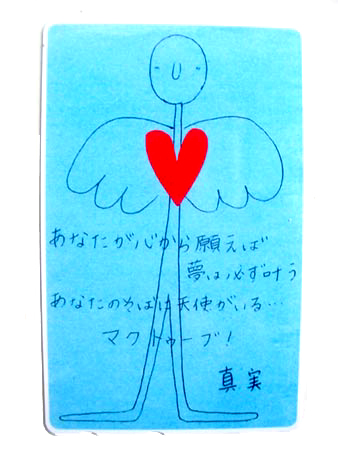 あなたが心から願えば
夢は必ず叶う
あなたのそばに天使がいる…
マクトゥーブ!
真実